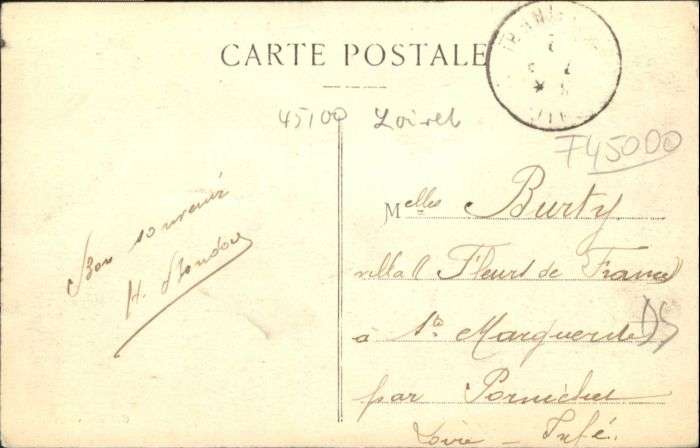 CARTE POSTALE
45100 Loiret
F45000
Bon souvenir
H.
Melles Burty
villa Fleurs de France
à Ste Marguerite
DS
par Pornichet
Loire - Infé.